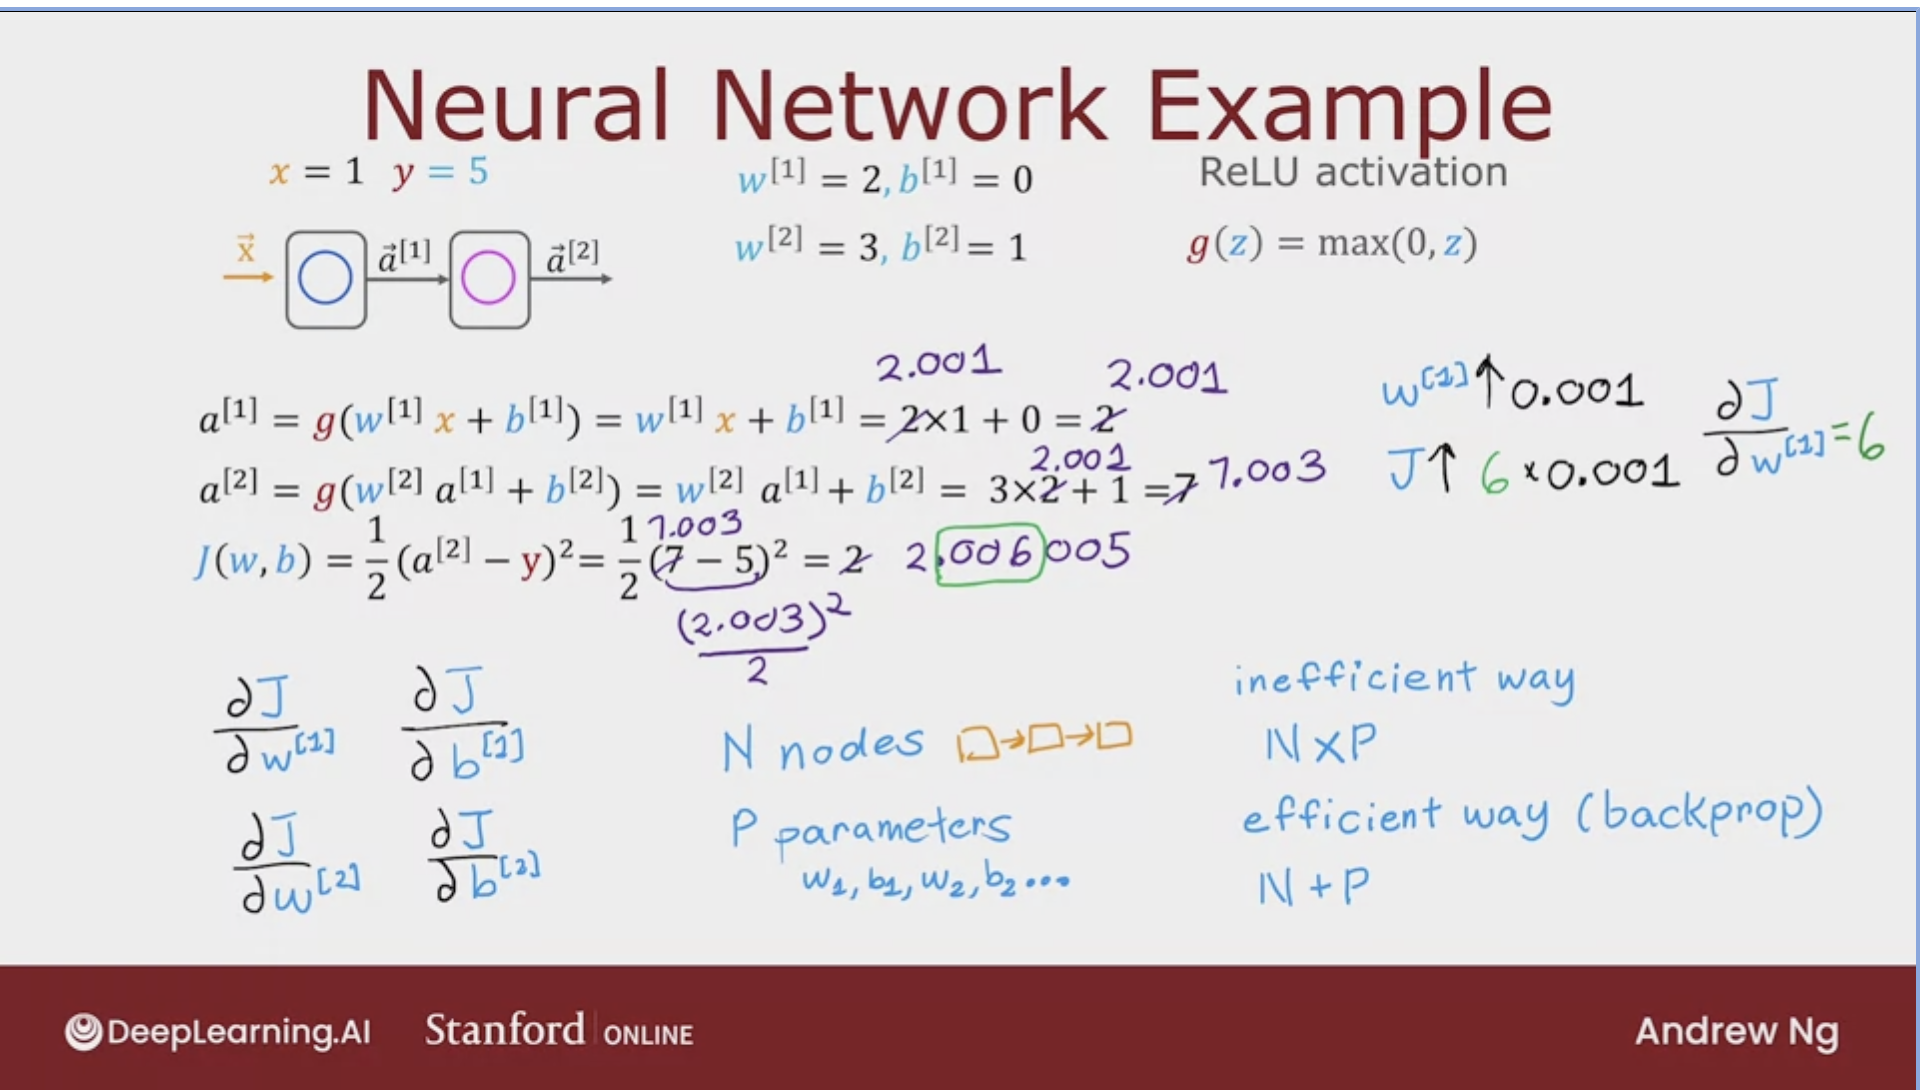 Neural Network Example
x = 1 y = 5
w[1] = 2, b[1] = 0
ReLU activation
x⃗ a⃗[1] a⃗[2]
w[2] = 3, b[2] = 1
g(z) = max(0, z)
2.001 2.001
a[1] = g(w[1] x + b[1]) = w[1] x + b[1] = 2×1 + 0 = 2
w[1] ↑ 0.001
∂J/∂w[1] = 6
2.001
a[2] = g(w[2] a[1] + b[2]) = w[2] a[1] + b[2] = 3×2 + 1 = 7 7.003
J ↑ 6 × 0.001
7.003
J(w, b) = 1/2 (a[2] − y)² = 1/2 (7 − 5)² = 2 2.006005
(2.003)²/2
∂J/∂w[1] ∂J/∂b[1]
∂J/∂w[2] ∂J/∂b[2]
N nodes □→□→□
P parameters
w1, b1, w2, b2...
inefficient way
N x P
efficient way (backprop)
N + P
DeepLearning.AI Stanford ONLINE
Andrew Ng